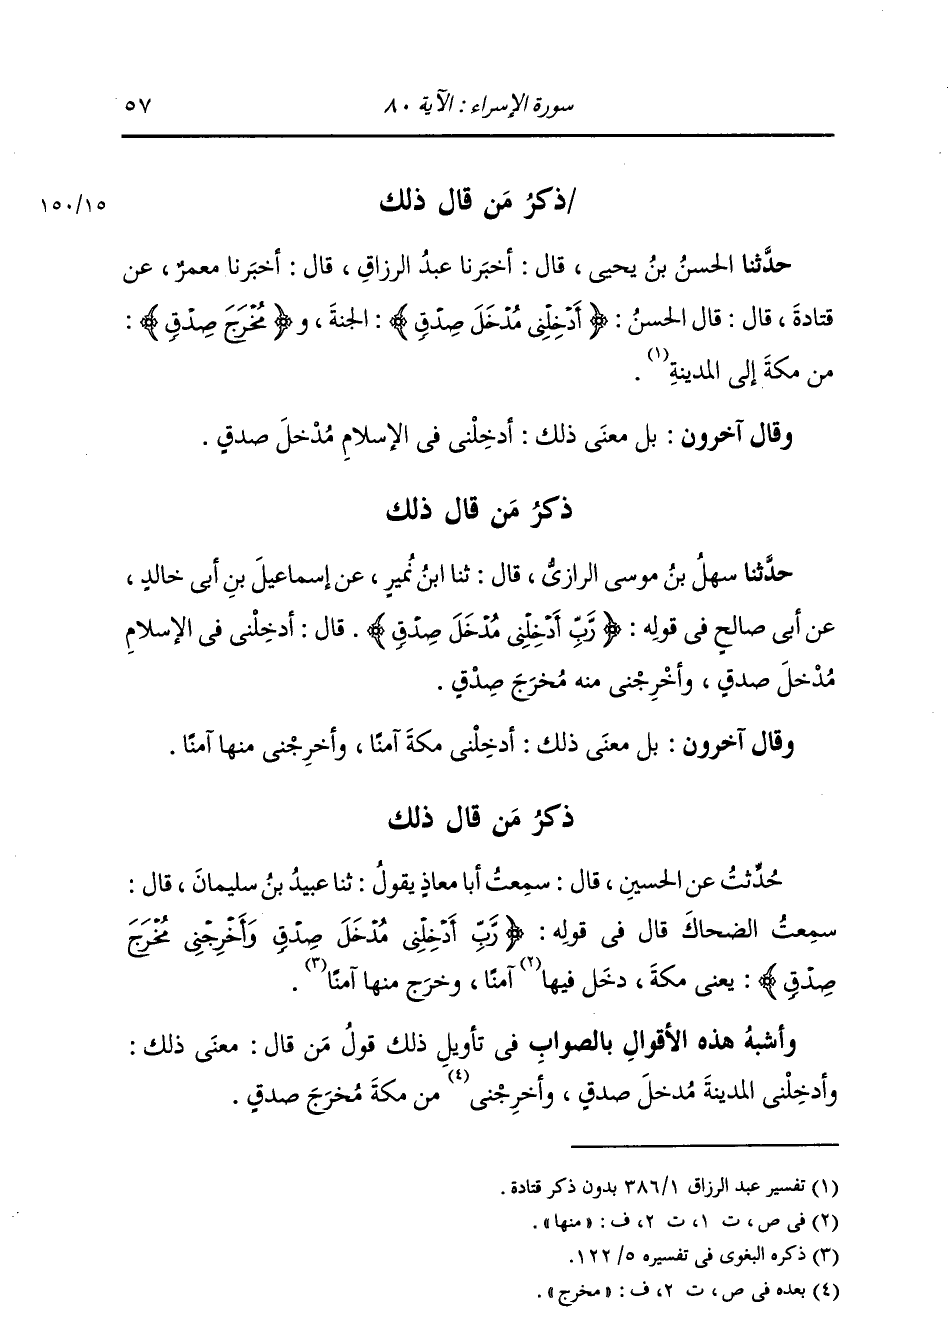 سورة الإسراء : الآية ٨٠
٥٧
/ذكرُ مَن قال ذلك
١٥٠/١٥
حدَّثنا الحسنُ بنُ يحيى ، قال : أخبَرنا عبدُ الرزاقِ ، قال : أخبَرنا معمرٌ ، عن
قتادةَ ، قال : قال الحسنُ : ﴿ أَدْخِلْنِى مُدْخَلَ صِدْقٍ ﴾ : الجنةَ ، و ﴿ مُخْرَجَ صِدْقٍ ﴾ :
من مكةَ إلى المدينةِ(١) .
وقال آخرون : بل معنَى ذلك : أدخِلْنى فى الإسلامِ مُدْخلَ صدقٍ .
ذكرُ مَن قال ذلك
حدَّثنا سهلُ بنُ موسى الرازىُّ ، قال : ثنا ابنُ نُميرٍ ، عن إسماعيلَ بنِ أبى خالدٍ ،
عن أبى صالحٍ فى قولِه : ﴿ رَّبِّ أَدْخِلْنِى مُدْخَلَ صِدْقٍ ﴾ . قال : أدخِلْنى فى الإسلامِ
مُدْخلَ صدقٍ ، وأخْرِجْنى منه مُخرَجَ صِدْقٍ .
وقال آخرون : بل معنَى ذلك : أدخِلْنى مكةَ آمنًا ، وأخرِجْنى منها آمنًا .
ذكرُ مَن قال ذلك
حُدِّثتُ عن الحسينِ ، قال : سمِعتُ أبا معاذٍ يقولُ : ثنا عبيدُ بنُ سليمانَ ، قال :
سمِعتُ الضحاكَ قال فى قولِه : ﴿ رَّبِّ أَدْخِلْنِى مُدْخَلَ صِدْقٍ وَأَخْرِجْنِى مُخْرَجَ
صِدْقٍ ﴾ : يعنى مكةَ ، دخَل فيها(٢) آمنًا ، وخرَج منها آمنًا(٣) .
وأشبهُ هذه الأقوالِ بالصوابِ فى تأويلِ ذلك قولُ مَن قال : معنَى ذلك :
وأدخِلْنى المدينةَ مُدخلَ صدقٍ ، وأخرِجْنى(٤) من مكةَ مُخرَجَ صدقٍ .
(١) تفسير عبد الرزاق ٣٨٦/١ بدون ذكر قتادة .
(٢) فى ص ، ت ١، ت ٢، ف : «منها» .
(٣) ذكره البغوى فى تفسيره ٥/ ١٢٢.
(٤) بعده فى ص ، ت ٢، ف : «مخرج» .